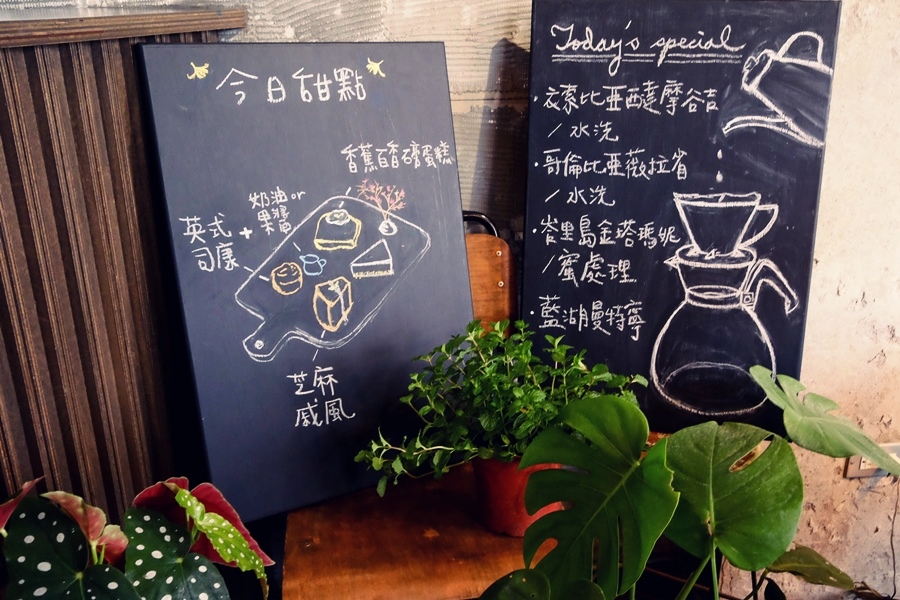 今日甜點
香蕉百香磅蛋糕
奶油or
果醬
英式
司康
+
芝麻
戚風
Today's special
·衣索比亞西達摩谷吉
/水洗
·哥倫比亞薇拉省
/水洗
·峇里島金塔瑪妮
/蜜處理
·藍湖曼特寧